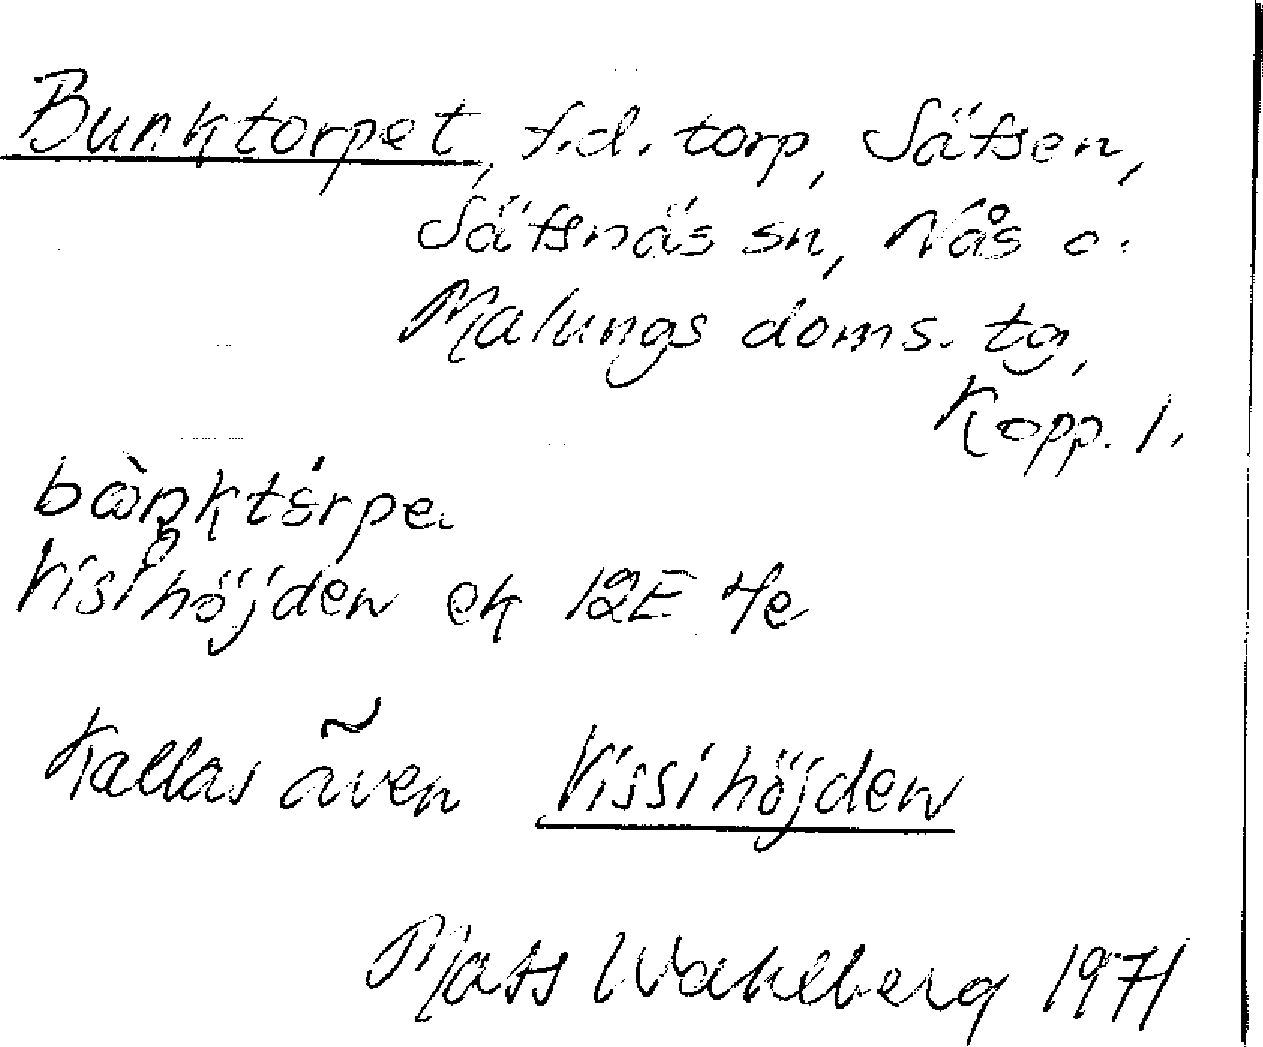 Bunktorpet, f.d. torp, Säfsen,
Säfsnäs sn, Nås o.
Malungs doms. tg,
Kopp. l.
Visihöjden ek 12E 4e
Kallas även Vissihöjden
Mats Wahlberg 1971